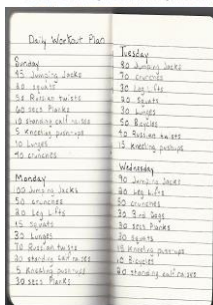 Daily Workout Plan
Sunday
45 Jumping Jacks
60 squats
50 Russian twists
60 secs Planks
10 standing calf raises
5 Kneeling push-ups
10 Lunges
40 crunches
Monday
100 Jumping Jacks
50 crunches
20 Leg Lifts
45 Squats
30 Lunges
70 Russian twists
20 standing calf raises
5 Kneeling push-ups
30 secs Planks
Tuesday
80 Jumping Jacks
70 crunches
30 Leg Lifts
20 Squats
30 Lunges
50 Bicycles
40 Russian twists
15 kneeling pushups
Wednesday
90 Jumping Jacks
20 Leg Lifts
50 crunches
30 Bird Dogs
30 secs Planks
70 squats
15 Kneeling pushups
10 Bicycles
20 standing calf raises